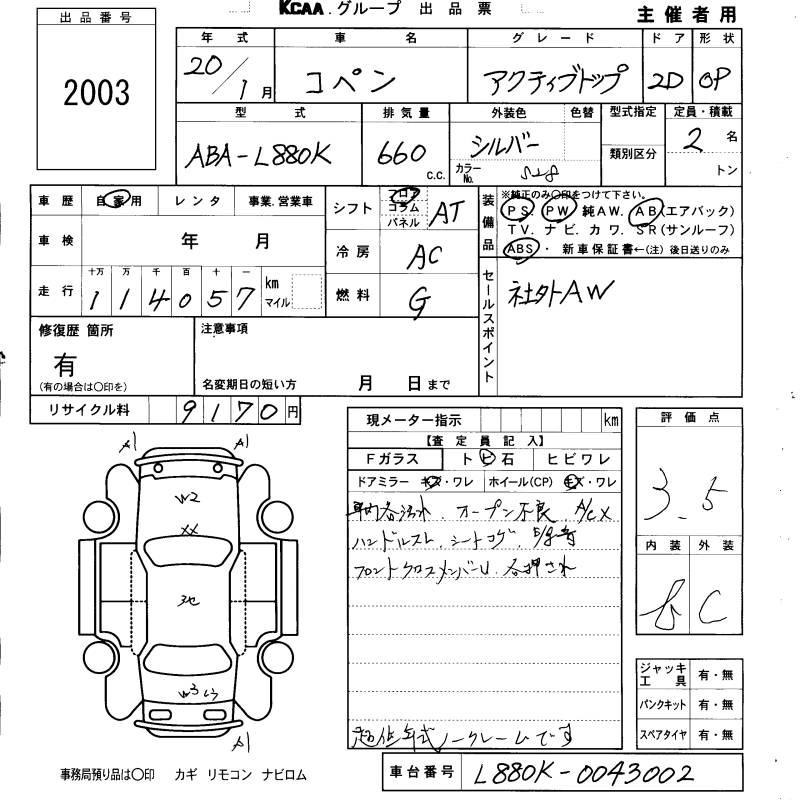 KCAA.グループ 出品票
主催者用
出品番号
2003
年式 車名 グレード ドア 形状
20/1月 コペン アクティブトップ 2D OP
型式 排気量 外装色 色替 型式指定 定員・積載
ABA-L880K 660 c.c. シルバー 類別区分 2名
カラーNo. S28 トン
車歴 自家用 レンタ 事業.営業車
シフト フロア コラム パネル AT
装備品 ※純正のみ○印をつけて下さい。
PS PW 純AW. AB(エアバック)
TV. ナビ. カワ. SR(サンルーフ)
ABS・ 新車保証書←(注)後日送りのみ
車検 年 月
冷房 AC
走行 十万 万 千 百 十 一
114057 km マイル
燃料 G
セールスポイント 社外AW
修復歴 箇所
有
(有の場合は○印を)
注意事項
名変期日の短い方 月 日まで
リサイクル料 9170円
現メーター指示 km
評価点
3.5
【査定員記入】
Fガラス トビ石 ヒビワレ
ドアミラー キズ・ワレ ホイール(CP) キズ・ワレ
オープン不良. A/C X
ハンドルスレ. シートコゲ.
フロントクロスメンバーU. 各押され
内装 外装
C
A1 A1
W2
XX
W3
A1
ジャッキ工具 有・無
パンクキット 有・無
スペアタイヤ 有・無
超低年式ノークレームです
事務局預り品は○印 カギ リモコン ナビロム
車台番号 L880K-0043002